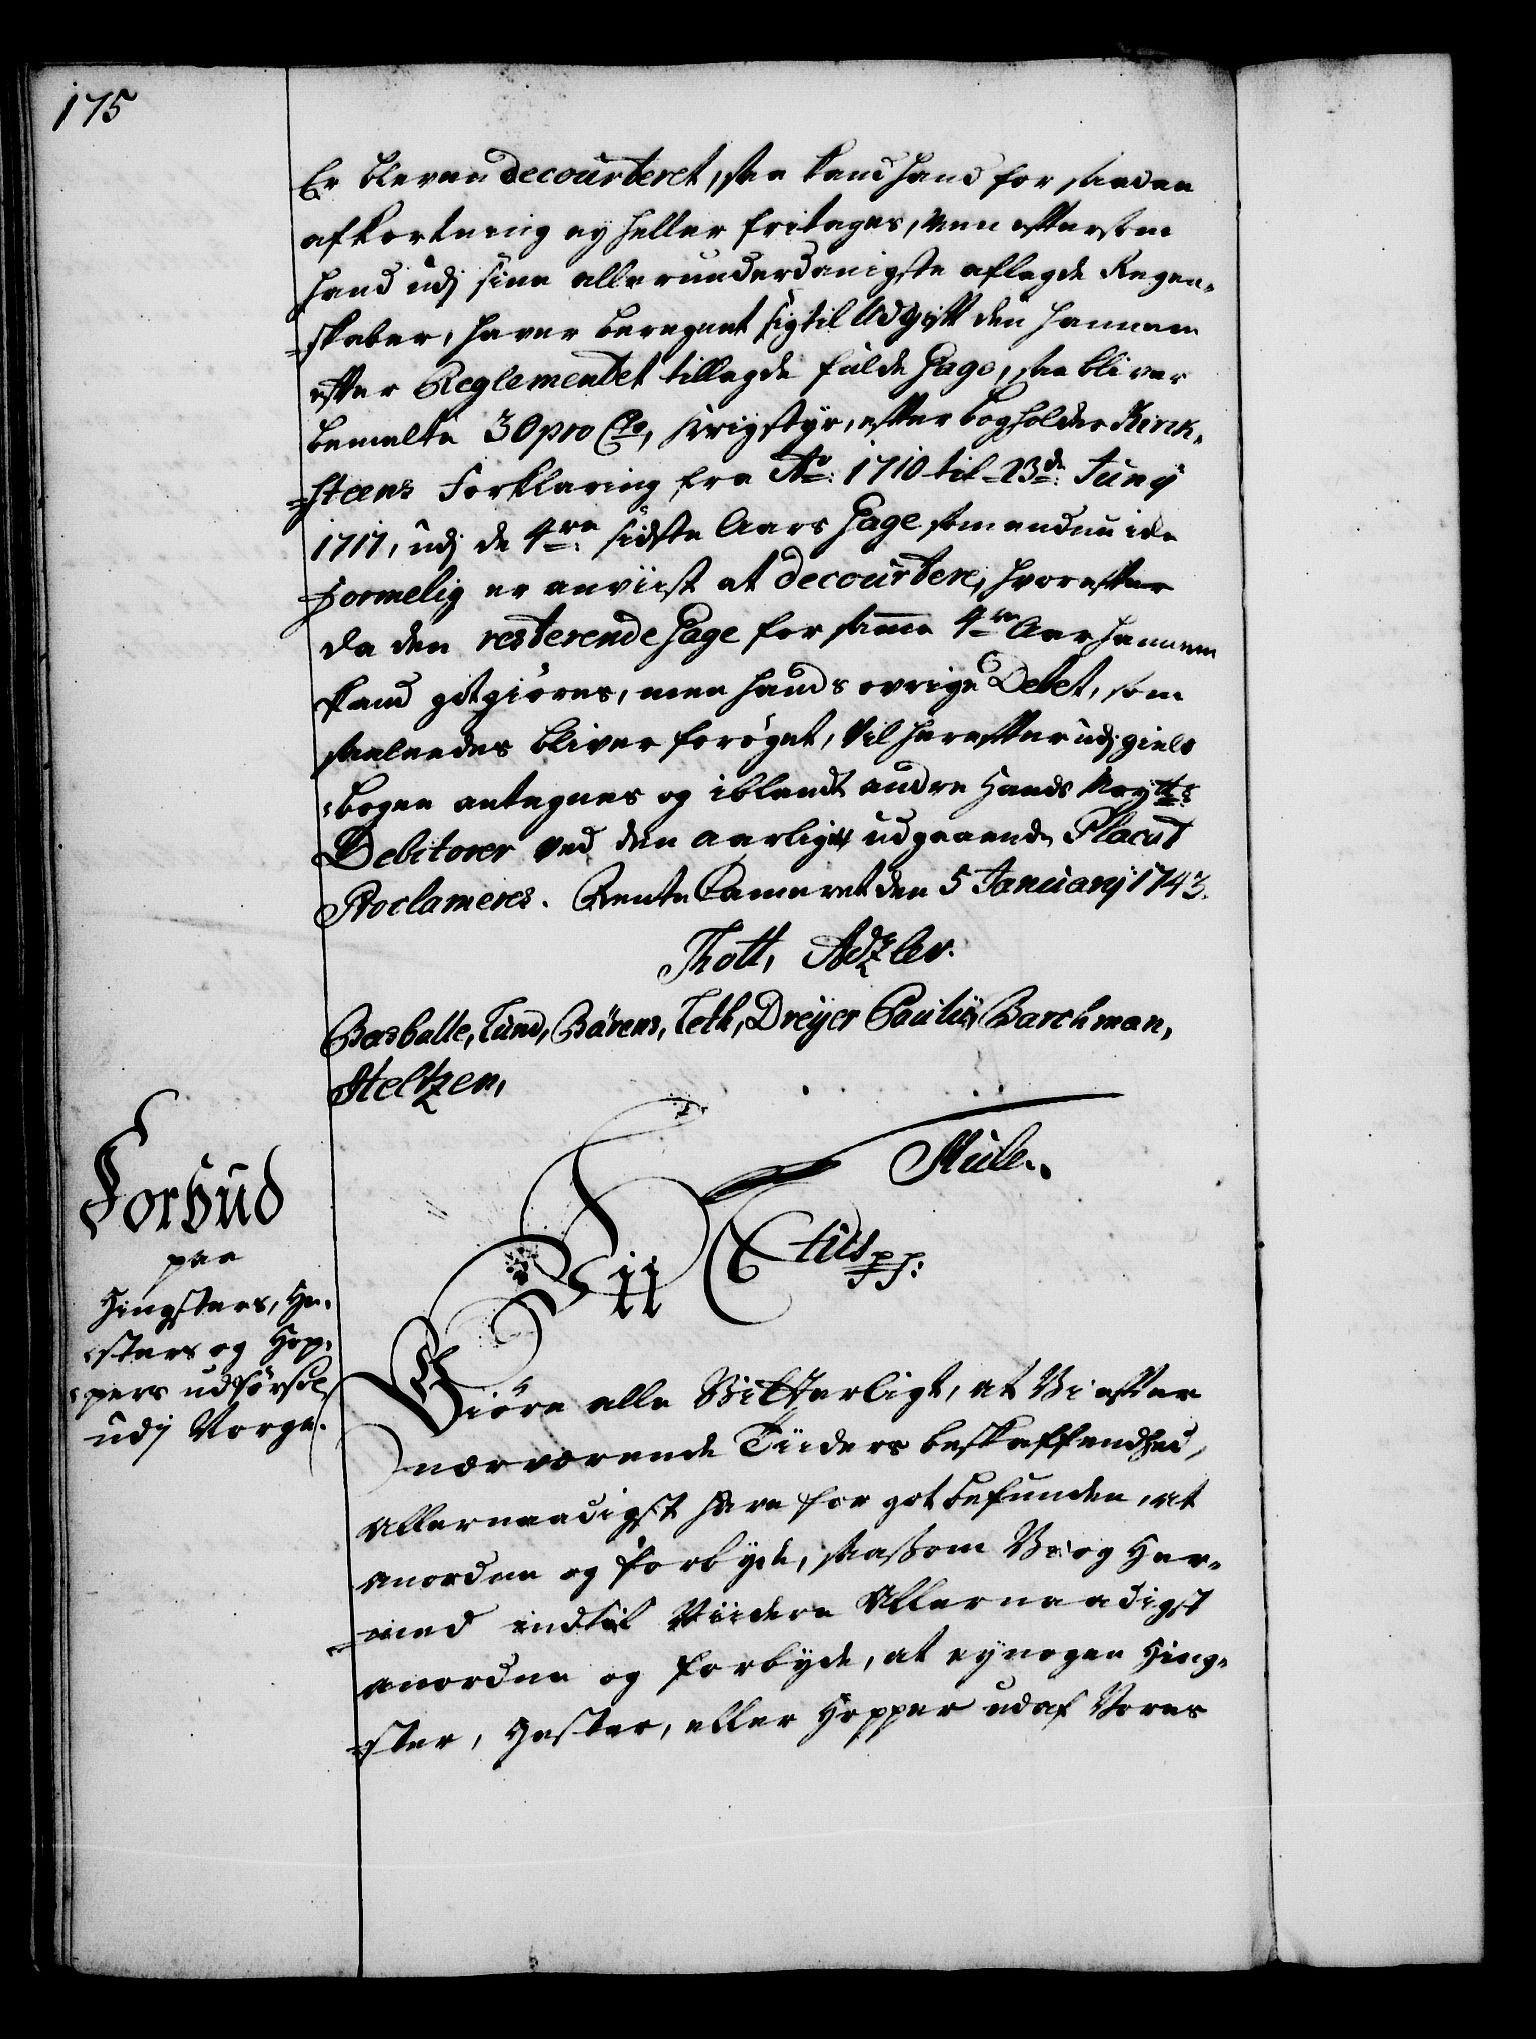 175
Er bleven decourteret, saa kand hand for saadan
afkortning ey heller fritages, Men eftersom
hand udj sine allerunderdanigste aflagde Regen-
=skaber, haver beregnet sig til Udgift den hannem
efter Reglementet tillagde fulde Gage, saa bliver
bemelte 30 pro Cto, Krigstyr, efter bogholder Kirck-
=steens Forklaring fra Ao: 1710 til 23de: Junij
1717, udj de 4re: sidste Aars Gage som endnu icke
formelig er anviist at decourtere, hvorefter
da den resterende Gage for samme 4re Aar hannem
kand gotgiøres, men hands øvrige Debet, som
saaledes bliver forøget, Vil herefter udj giels
=bogen antegnes og iblandt andre Hands Maytts:
Debitorer ved den aarligt udgaaende Placat
Proclameres. Rente Cameret den 5 Januarij 1743.
Thott, Adzler.
Basballe, Lund, Bärens, Teth, Dreyer Paulij, Barchman,
Heltzen,
Mule.
Forbud
paa
Hingsters, He-
=sters og Hop-
=pers udførsel
udj Norge.
Vii Ctus pp:
Giøre alle Vitterligt, at Vi efter
nærværende Tiiders beskaffenhed,
Allernaadigst have for got befunden, at
anordne og forbyde, saasom Vi og Her-
=med indtil Viidere Allernaadigst
anordne og forbyde, at ey nogen Hing-
=ster, Hester, eller Hopper ud af Vores